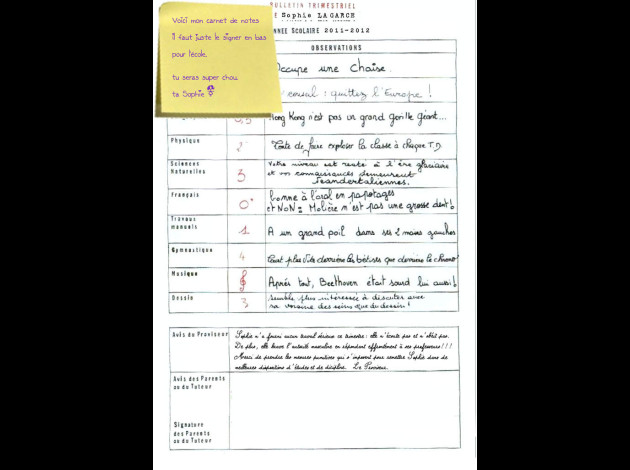 BULLETIN TRIMESTRIEL
Sophie LAGARCE
ANNEE SCOLAIRE 2011-2012
Voici mon carnet de notes
il faut juste le signer en bas
pour l'école.
tu seras super chou
ta Sophie
OBSERVATIONS
occupe une chaise.
conseil : quittez l'Europe !
0,5 Hong Kong n'est pas un grand gorille géant...
Physique 2 Tente de faire exploser la classe à chaque T.D
Sciences Naturelles 3 Votre niveau est resté à l'ère glaciaire
et vos connaissances demeurent
neandertaliennes.
Français 0 bonne à l'oral en papotages
et NON : Molière n'est pas une grosse dent !
Travaux manuels 1 A un grand poil dans ses 2 mains gauches
Gymnastique 4 Court plus vite derrière les bêtises que derrière le chrono !
Musique Après tout, Beethoven était sourd lui aussi !
Dessin 3 semble plus intéressée à discuter avec
sa voisine des seins que du dessin !
Avis du Proviseur Sophie n'a fourni aucun travail sérieux ce trimestre : elle n'écoute pas et n'obéit pas.
De plus, elle brave l'autorité en répondant effrontément à ses professeurs !!!
Merci de prendre les mesures punitives qui s'imposent pour remettre Sophie dans de
meilleures dispositions d'études et de discipline. Le Proviseur.
Avis des Parents
ou du Tuteur
Signature
des Parents
ou du Tuteur